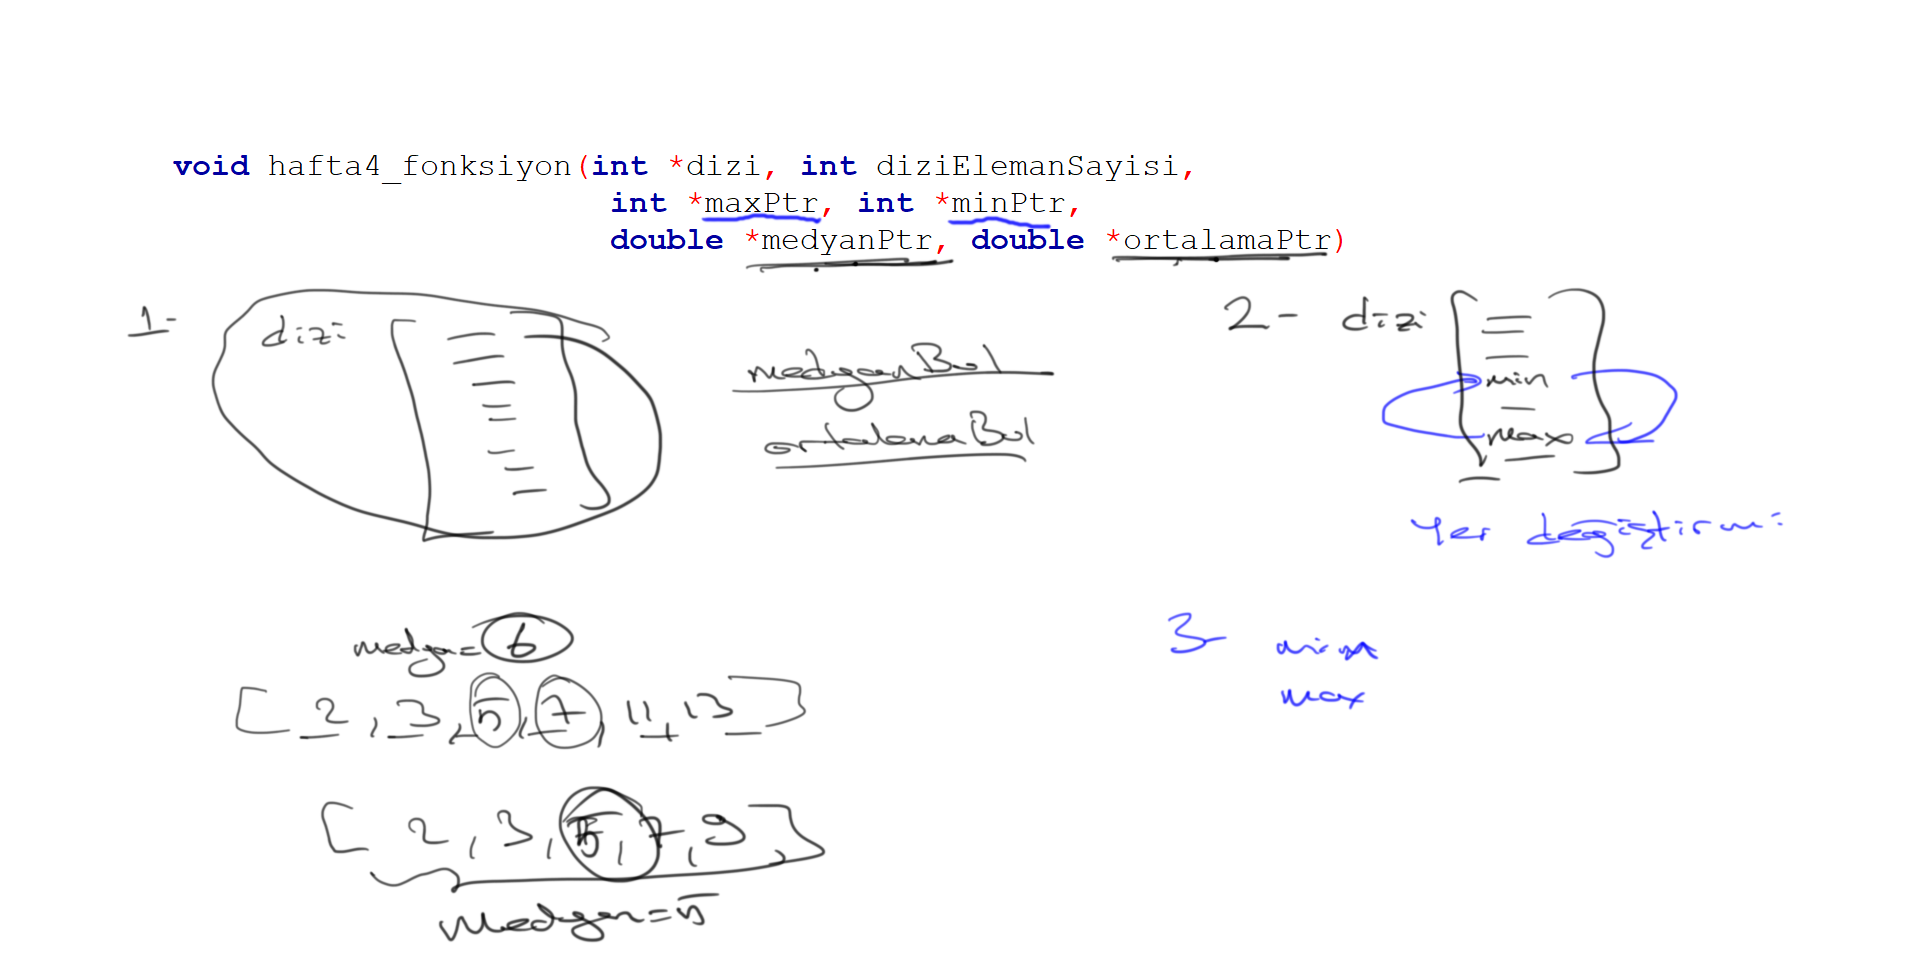 void hafta4_fonksiyon(int *dizi, int diziElemanSayisi,
int *maxPtr, int *minPtr,
double *medyanPtr, double *ortalamaPtr)
1-
dizi
medyanBul
ortalamaBul
2- dizi
min
max
Yer değiştirmi
medyan=6
[2,3,5,7,11,13]
[2,3,5,7,9]
Medyan=5
3- min
max